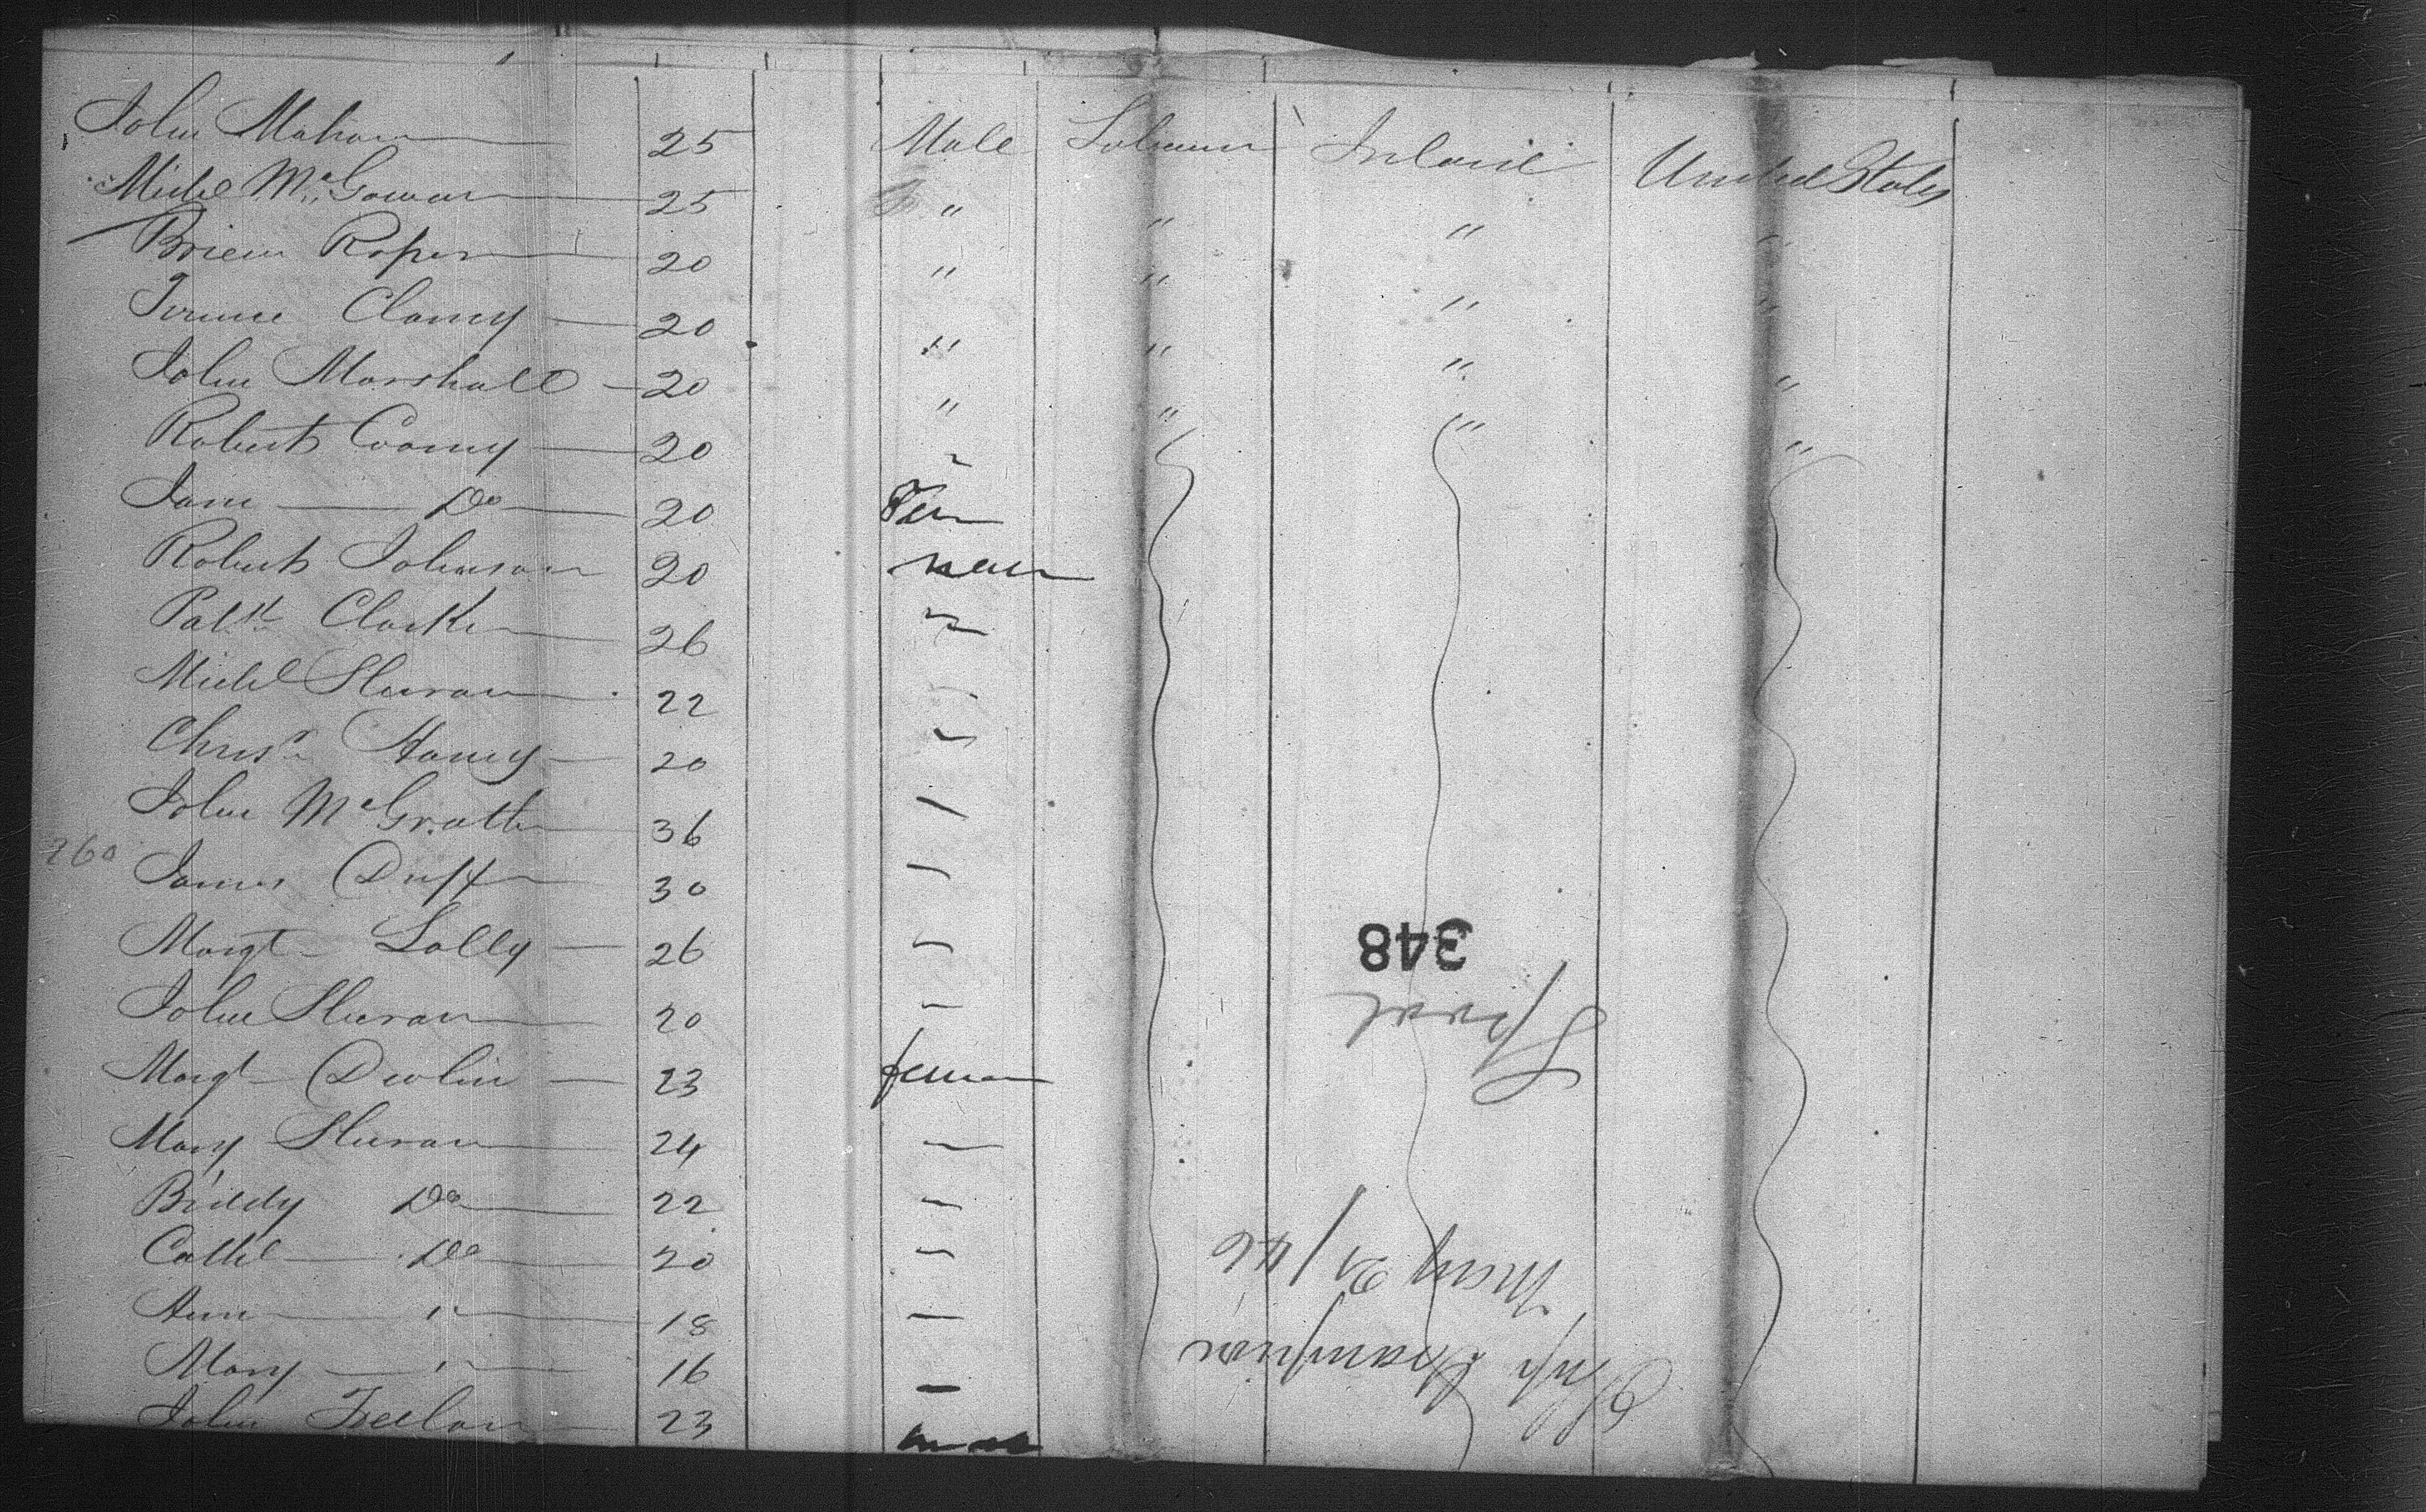 John Mahon 25 Male Labourer Ireland United States
Michl McGowan 25 " " " "
Brien Roper 20 " " " "
Terence Clancy 20 " " "
John Marshall 20 " " " "
Robert Cooney 20 "
Jane Do 20 Fem
Robert Johnson 20 Male
Patk Clarke 26
Michl Sheran 22
Chrisr Haney 20
John McGrath 36
260
James Duff 30
Margt Lally 26
John Sheran 20
Margt Devlin 23 female
Mary Sheran 24
Biddy Do 22
Cathl Do 20
Ann " 18
Mary " 16
John Feelan 23 male
Ship Hampden
May 21/46
Lpool
348